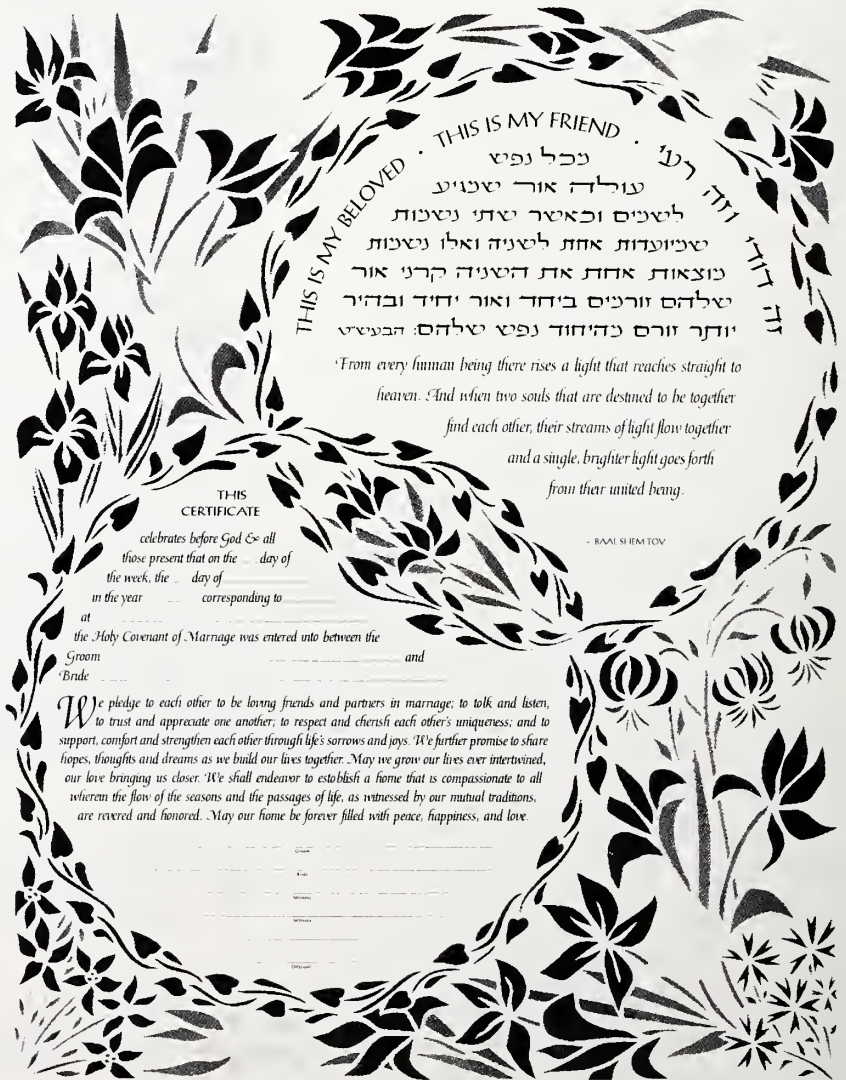 THIS IS MY BELOVED · THIS IS MY FRIEND ·
זה דודי וזה רעי
מכל נפש
עולה אור שמגיע
לשמים וכאשר שתי נשמות
שמיועדות אחת לשניה ואלו נשמות
מוצאות אחת את השניה קרני אור
שלהם זורמים ביחד ואור יחיד ובהיר
יותר זורם מהיחוד נפש שלהם: הבעש״ט
From every human being there rises a light that reaches straight to
heaven. And when two souls that are destined to be together
find each other, their streams of light flow together
and a single, brighter light goes forth
from their united being.
- BAAL SHEM TOV
THIS
CERTIFICATE
celebrates before God & all
those present that on the day of
the week, the day of
in the year corresponding to
at
the Holy Covenant of Marriage was entered into between the
Groom and
Bride
We pledge to each other to be loving friends and partners in marriage; to talk and listen,
to trust and appreciate one another; to respect and cherish each other's uniqueness; and to
support, comfort and strengthen each other through life's sorrows and joys. We further promise to share
hopes, thoughts and dreams as we build our lives together. May we grow our lives ever intertwined,
our love bringing us closer. We shall endeavor to establish a home that is compassionate to all
wherein the flow of the seasons and the passages of life, as witnessed by our mutual traditions,
are revered and honored. May our home be forever filled with peace, happiness, and love.
Groom
Bride
Witness
Witness
Officiant